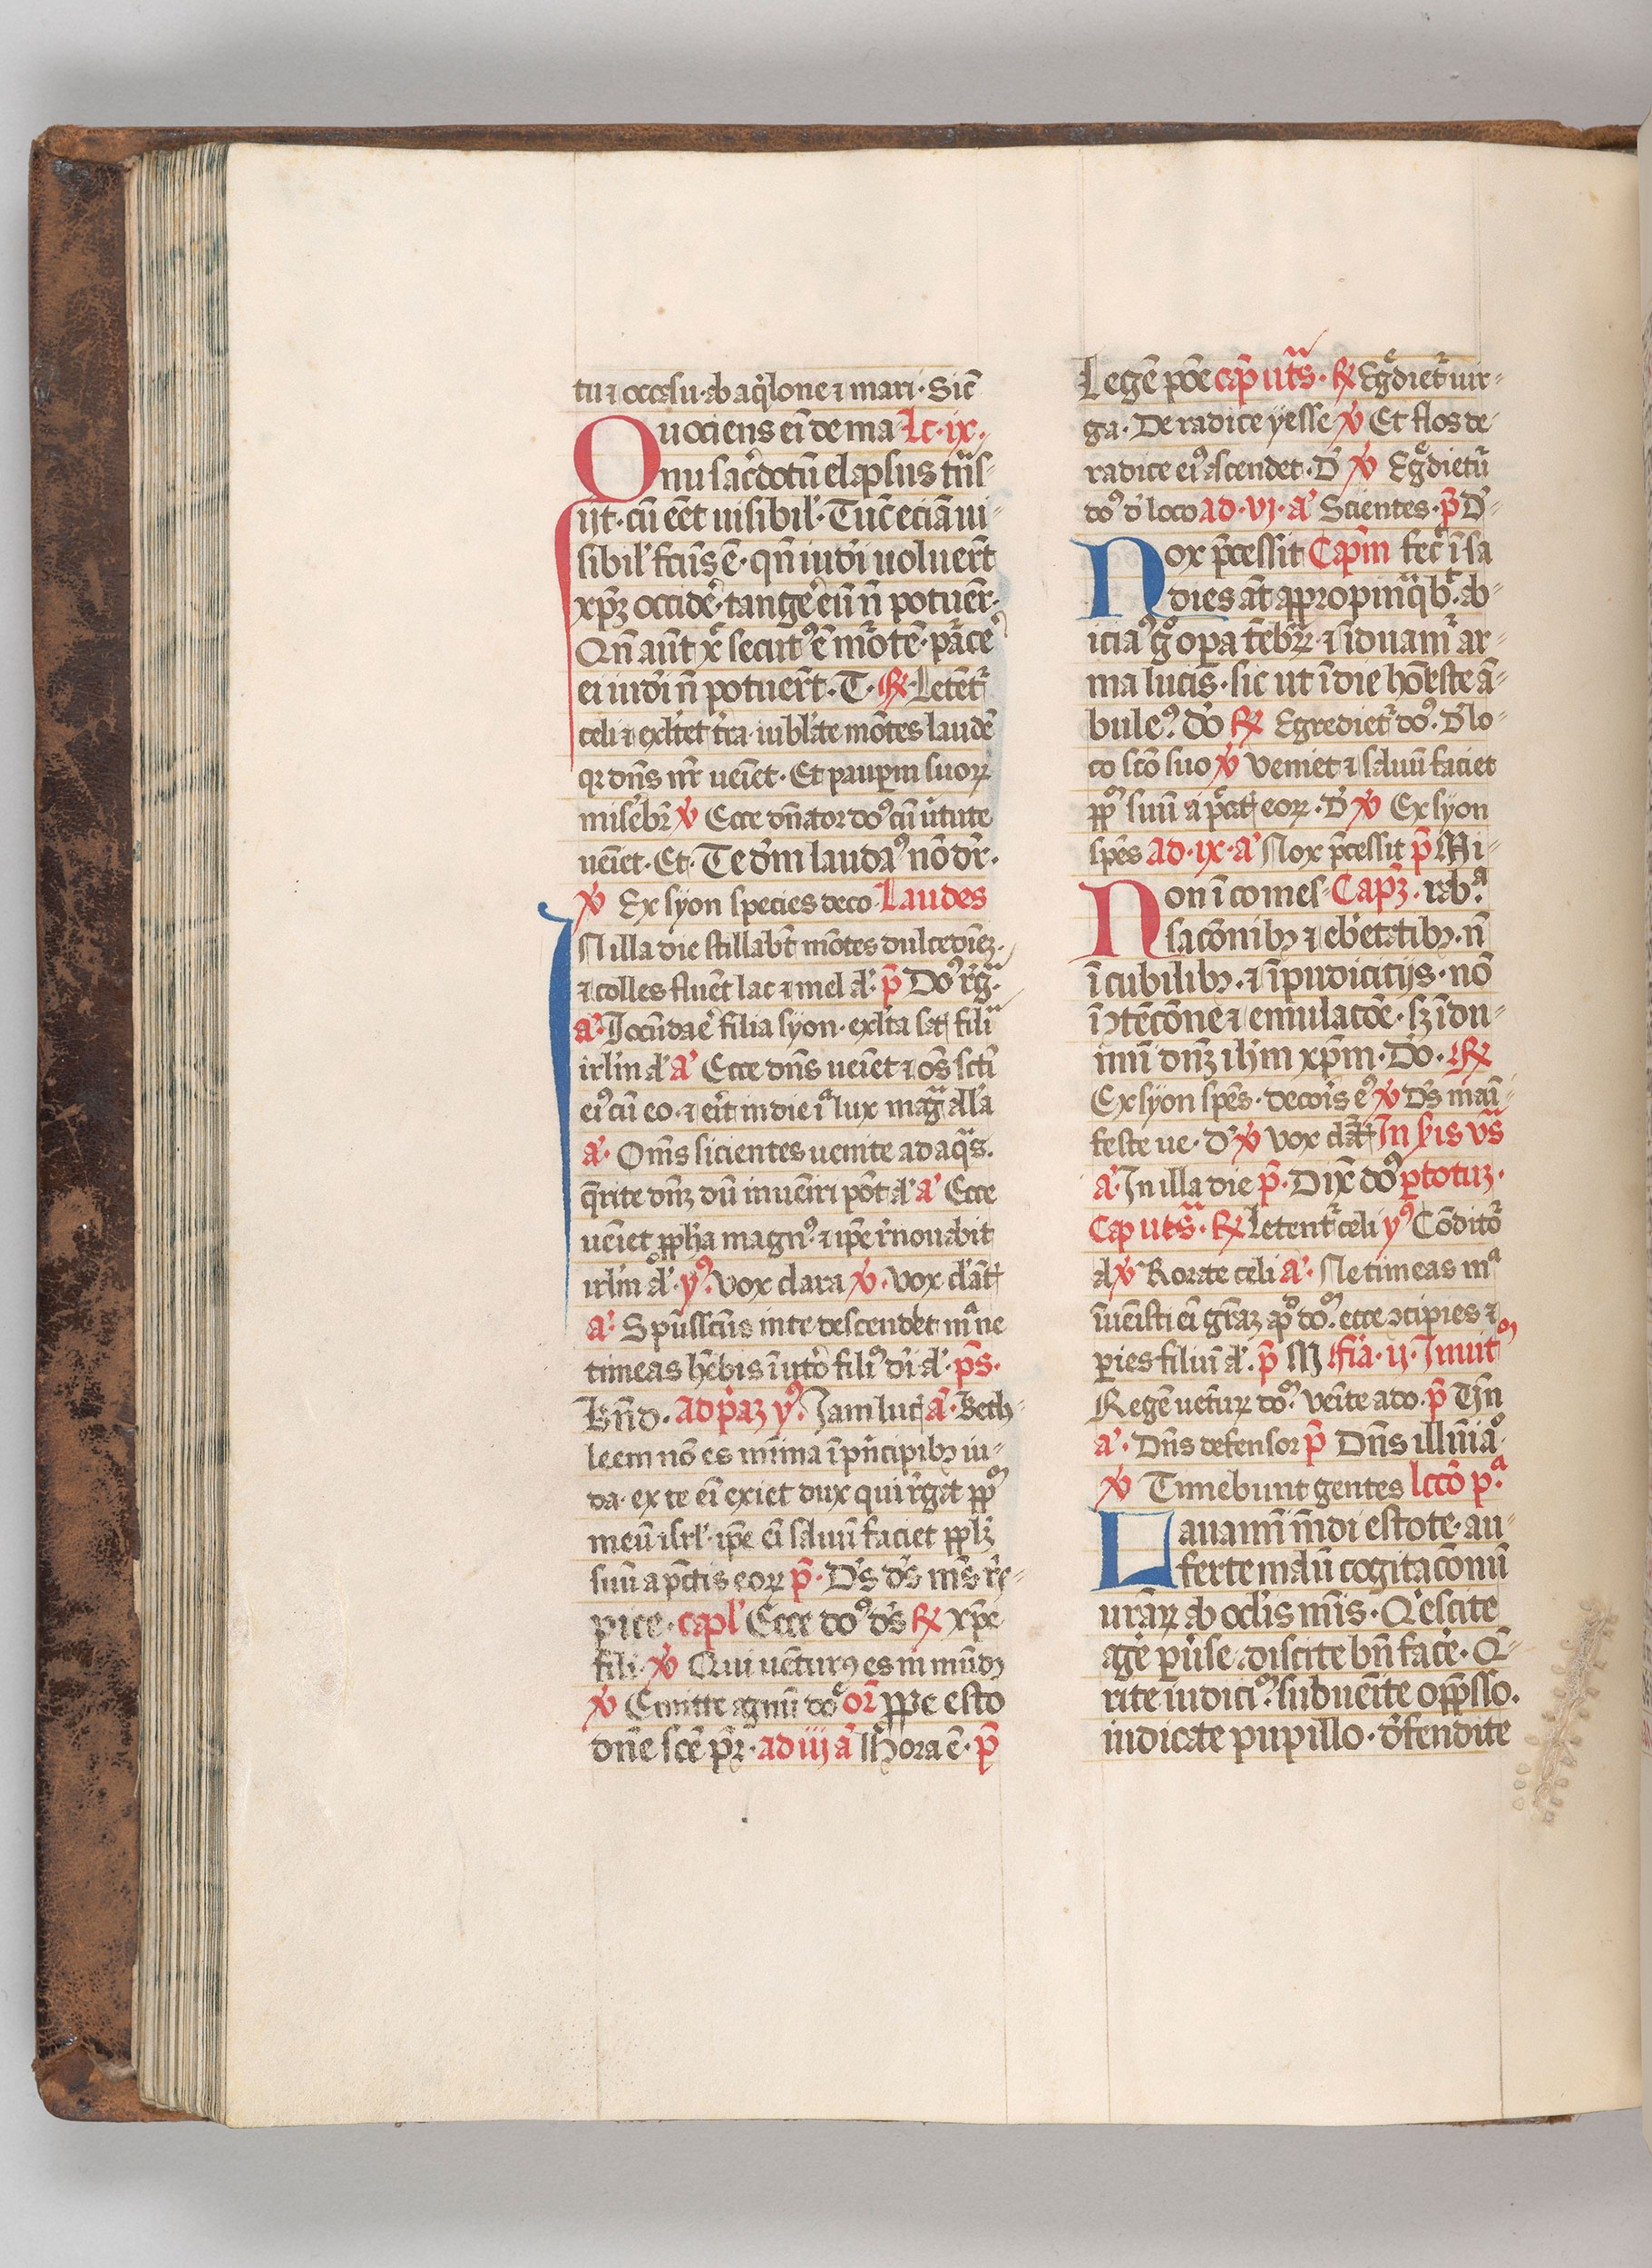 tu ⁊ occasu · ab aq̇lone ⁊ mari · Sic̄
Quociens eī de ma- Lc̄ · ix ·
nu sac̓dotū elapsus tn̄s-
ijt · cū eēt uisibil̓ · Tūc eciā ui-
sibil̓ fcūs ē · qn̄ iudi̓ uoluer̄t
xp̄ꝫ occide̓ · tange̓ eū n̄ potuer̄ ·
Qn̄ aūt x̄ secut᷒ ē
ei iudi̓ n̄ potuer̄t · T · ℟ · Letēt̄
celi ⁊ exl̓tet tr̄a iubl̓ate mōtes laudē
qꝛ dn̄s nr̄ ueīet · Et pauꝑm suoꝝ
mise̓br̄ ℣ Ecce dn̄ator do᷒ cū u̓tute
ueīet · Et · Te dm̄ lauda᷒ nō dr̄ ·
℣ Ex syon species deco- Laudes
N illa die stillabt̄ mōtes dulcedīeꝫ ·
⁊ colles fluēt lac ⁊ mel al̓ · p̄ Do᷒ rg̓ ·
a̓ · Jocūdae̓ filia syon · exl̓ta sat̄ filia
irl̓m al̓ a̓ Ecce dn̄s ueīet ⁊ oēs scti̓
ei᷒ cū eo · ⁊ eit̓ in die iͣ lux magͣ all̓a
a̓ · Om̄s sicientes uenite ad aqͣs ·
q̄rite dn̄ꝫ dū inuēiri pōt al̓ a̓ Ecce
uēiet ꝓph̄a magn᷒ · ⁊ ip̄e r̓nouabit
irl̓m al̓ · y᷒ · Vox clara ℣ · Vox clāt̄
a̓ · Spūsscūs in te descendet mͣ ne
timeas hēbis ī uto̓ fili᷒ di̓ al̓ · p̄s ·
Bn̄d · Ad p̓aꝫ y᷒ · Jam luc̄ a̓ · Beth-
leem nō es mīma ī pn̓cipibꝫ iu-
da · ex te eī exiet dux qui rg̓at ppͫ
meū isrl̓ · ip̄e eī saluū faciet pplꝫ
suū a pc̄tis eoꝝ p̄ · Ds̄ ds̄ ms̄ r̓e-
spice · capl̓ Ecce do᷒ ds̄ ℟ xp̄e
fili · ℣ Qui uētur᷒ es in mūdꝫ
℣ Emitte agnū do᷒ or̄ ꝓpe esto
dn̄e scē pr̄ · ad iij a̓ Hora ē · p̄
Legē pōe cap̄ ut sͣ · ℟ Egͤdiet̄ uir-
ga · De radice yesse ℣ Et flos de
radice ei᷒ ascendet · D̓ ℣ Egͤdietū
do᷒ d̓ loco ad · vj · a̓ Scientes · p̄ D̓-
Nox p̄cessit Cap̄m fec̄ ī sa
dies āt appropinqͣbt̄ · ab-
icia᷒ gͦ opa tēbꝝ · ⁊ īduam᷒ ar-
ma lucis · sic ut ī die hōeste ā-
bule᷒ · do̓ ℟ Egrediet̄ do᷒ · d̓ lo-
co scō suo ℣ Veniet ⁊ saluū faciet
ppͫ suū a pc̄at̄ eoꝝ · D̓ ℣ Ex syon
spēs ad · ix · a̓ Nox p̄cessit p̄ Mi-
Non ī comes- Capꝫ · rab̓ͣ
sacōnibꝫ ⁊ ebe̓tatibꝫ · n̄
ī cubilibꝫ · ⁊ īpudicitijs · nō
ī ꝯtēcōne ⁊ emulacōe · sꝫ īdu-
imī dnꝫ ih̄m xp̄m · Do · ℟
Ex syon spēs · decois̓ e᷒ ℣ Ds̄ māi-
feste ue · D̓ ℣ Vox clāt̄ In ij̓is vs̄
a̓ · In illa die p̄ · Dix̄ do᷒ ꝑ totuꝫ ·
Cap ut sͣ · ℟ Letent̄ celi y᷒ Cōditoͬ
al̓ ℣ Rorate celi a̓ · Ne timeas mͣ
īuēisti eī gr̄aꝫ ap̓ doͫ · ecce ꝯcipies ⁊
ꝑies filiū al̓ · p̄ M fīa · ij · Inuitͫ
Regē uētuꝝ doͫ · venite ado · p̄ Vn̄
a̓ · Dn̄s defensor p̄ Dn̄s illūiaͦ ·
℣ Timebunt gentes lcc̄o pͣ ·
Lauamī mūdi estote · au-
ferte malū cogitacōnū
ur̄aꝝ ab ocl̓is meis · Q̓escite
age̓ ꝑu̓se · discite bn̄ face̓ · Q̄-
rite iudici᷒ · subuēite opp̄sso ·
iudicate pupillo · d̓fendite